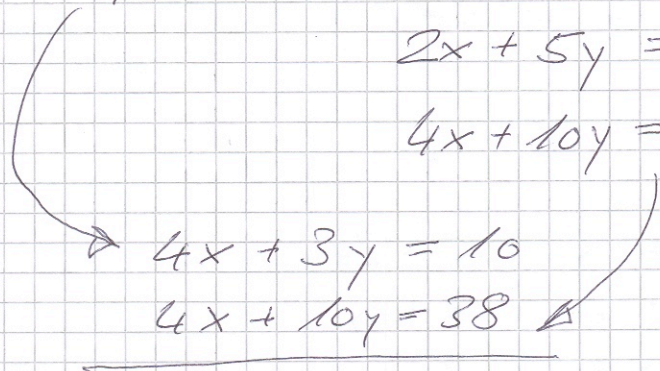 2x + 5y =
4x + 10y =
4x + 3y = 10
4x + 10y = 38